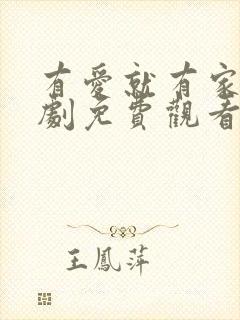 有愛就有家
劇免費觀看
王鳳萍